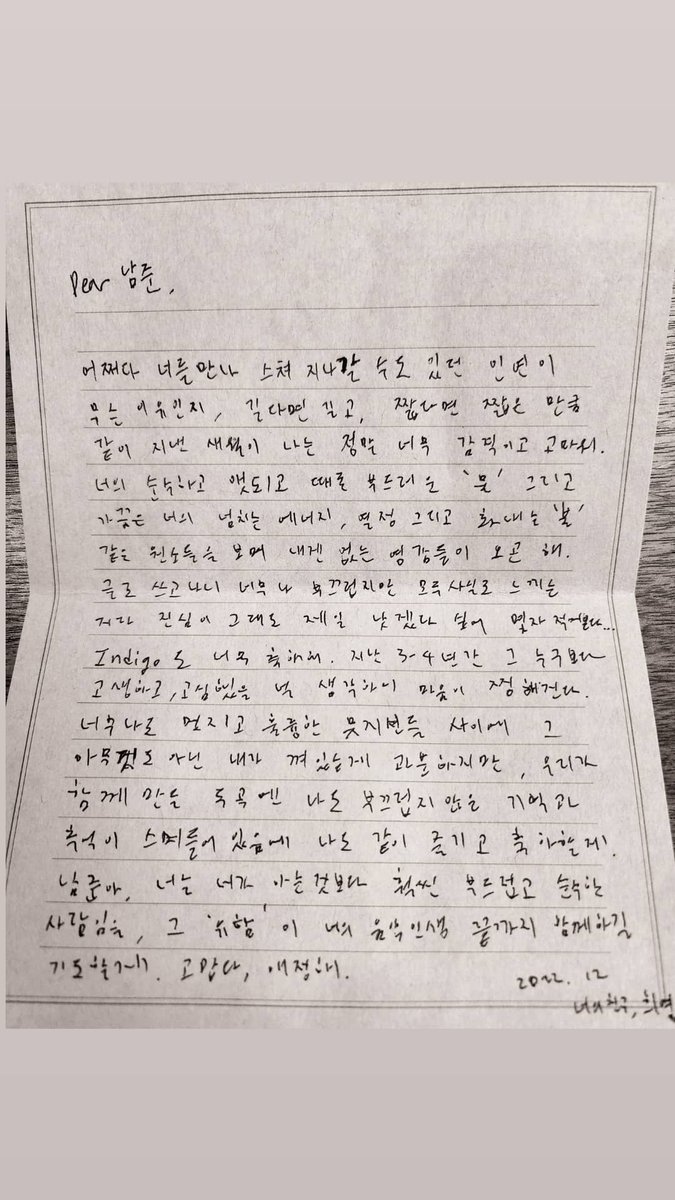 Dear 남준,
어쩌다 너를 만나 스쳐 지나갈 수도 있던 인연이
무슨 이유인지, 길다면 길고, 짧다면 짧은 만큼
같이 지낸 세월이 나는 정말 너무 감격이고 고마워.
너의 순수하고 앳되고 때론 부드러운 '물' 그리고
가끔은 너의 넘치는 에너지, 열정 그리고 화내는 '불'
같은 원소들을 보며 내겐 없는 영감들이 오곤 해.
글로 쓰고나니 너무나 부끄럽지만 모두 사실로 느끼는
거라 진심이 그래도 제일 낫겠다 싶어 몇자 적어본다...
Indigo도 너무 축하해. 지난 3-4년간 그 누구보다
고생하고, 고심했을 널 생각하니 마음이 찡해진다.
너무나도 멋지고 훌륭한 뮤지션들 사이에 그
아무것도 아닌 내가 껴있는게 과분하지만, 우리가
함께 만든 두곡엔 나도 부끄럽지 않은 기억과
추억이 스며들어 있음에 나도 같이 즐기고 축하할게.
남준아, 너는 너가 아는것보다 훨씬 부드럽고 순수한
사람임을, 그 '유함'이 너의 음악인생 끝까지 함께하길
기도할게. 고맙다, 애정해.
2022. 12
너의 친구, 희연